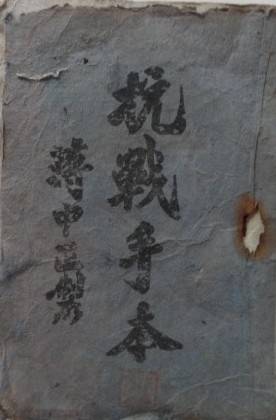 抗戰手本
蔣中正製